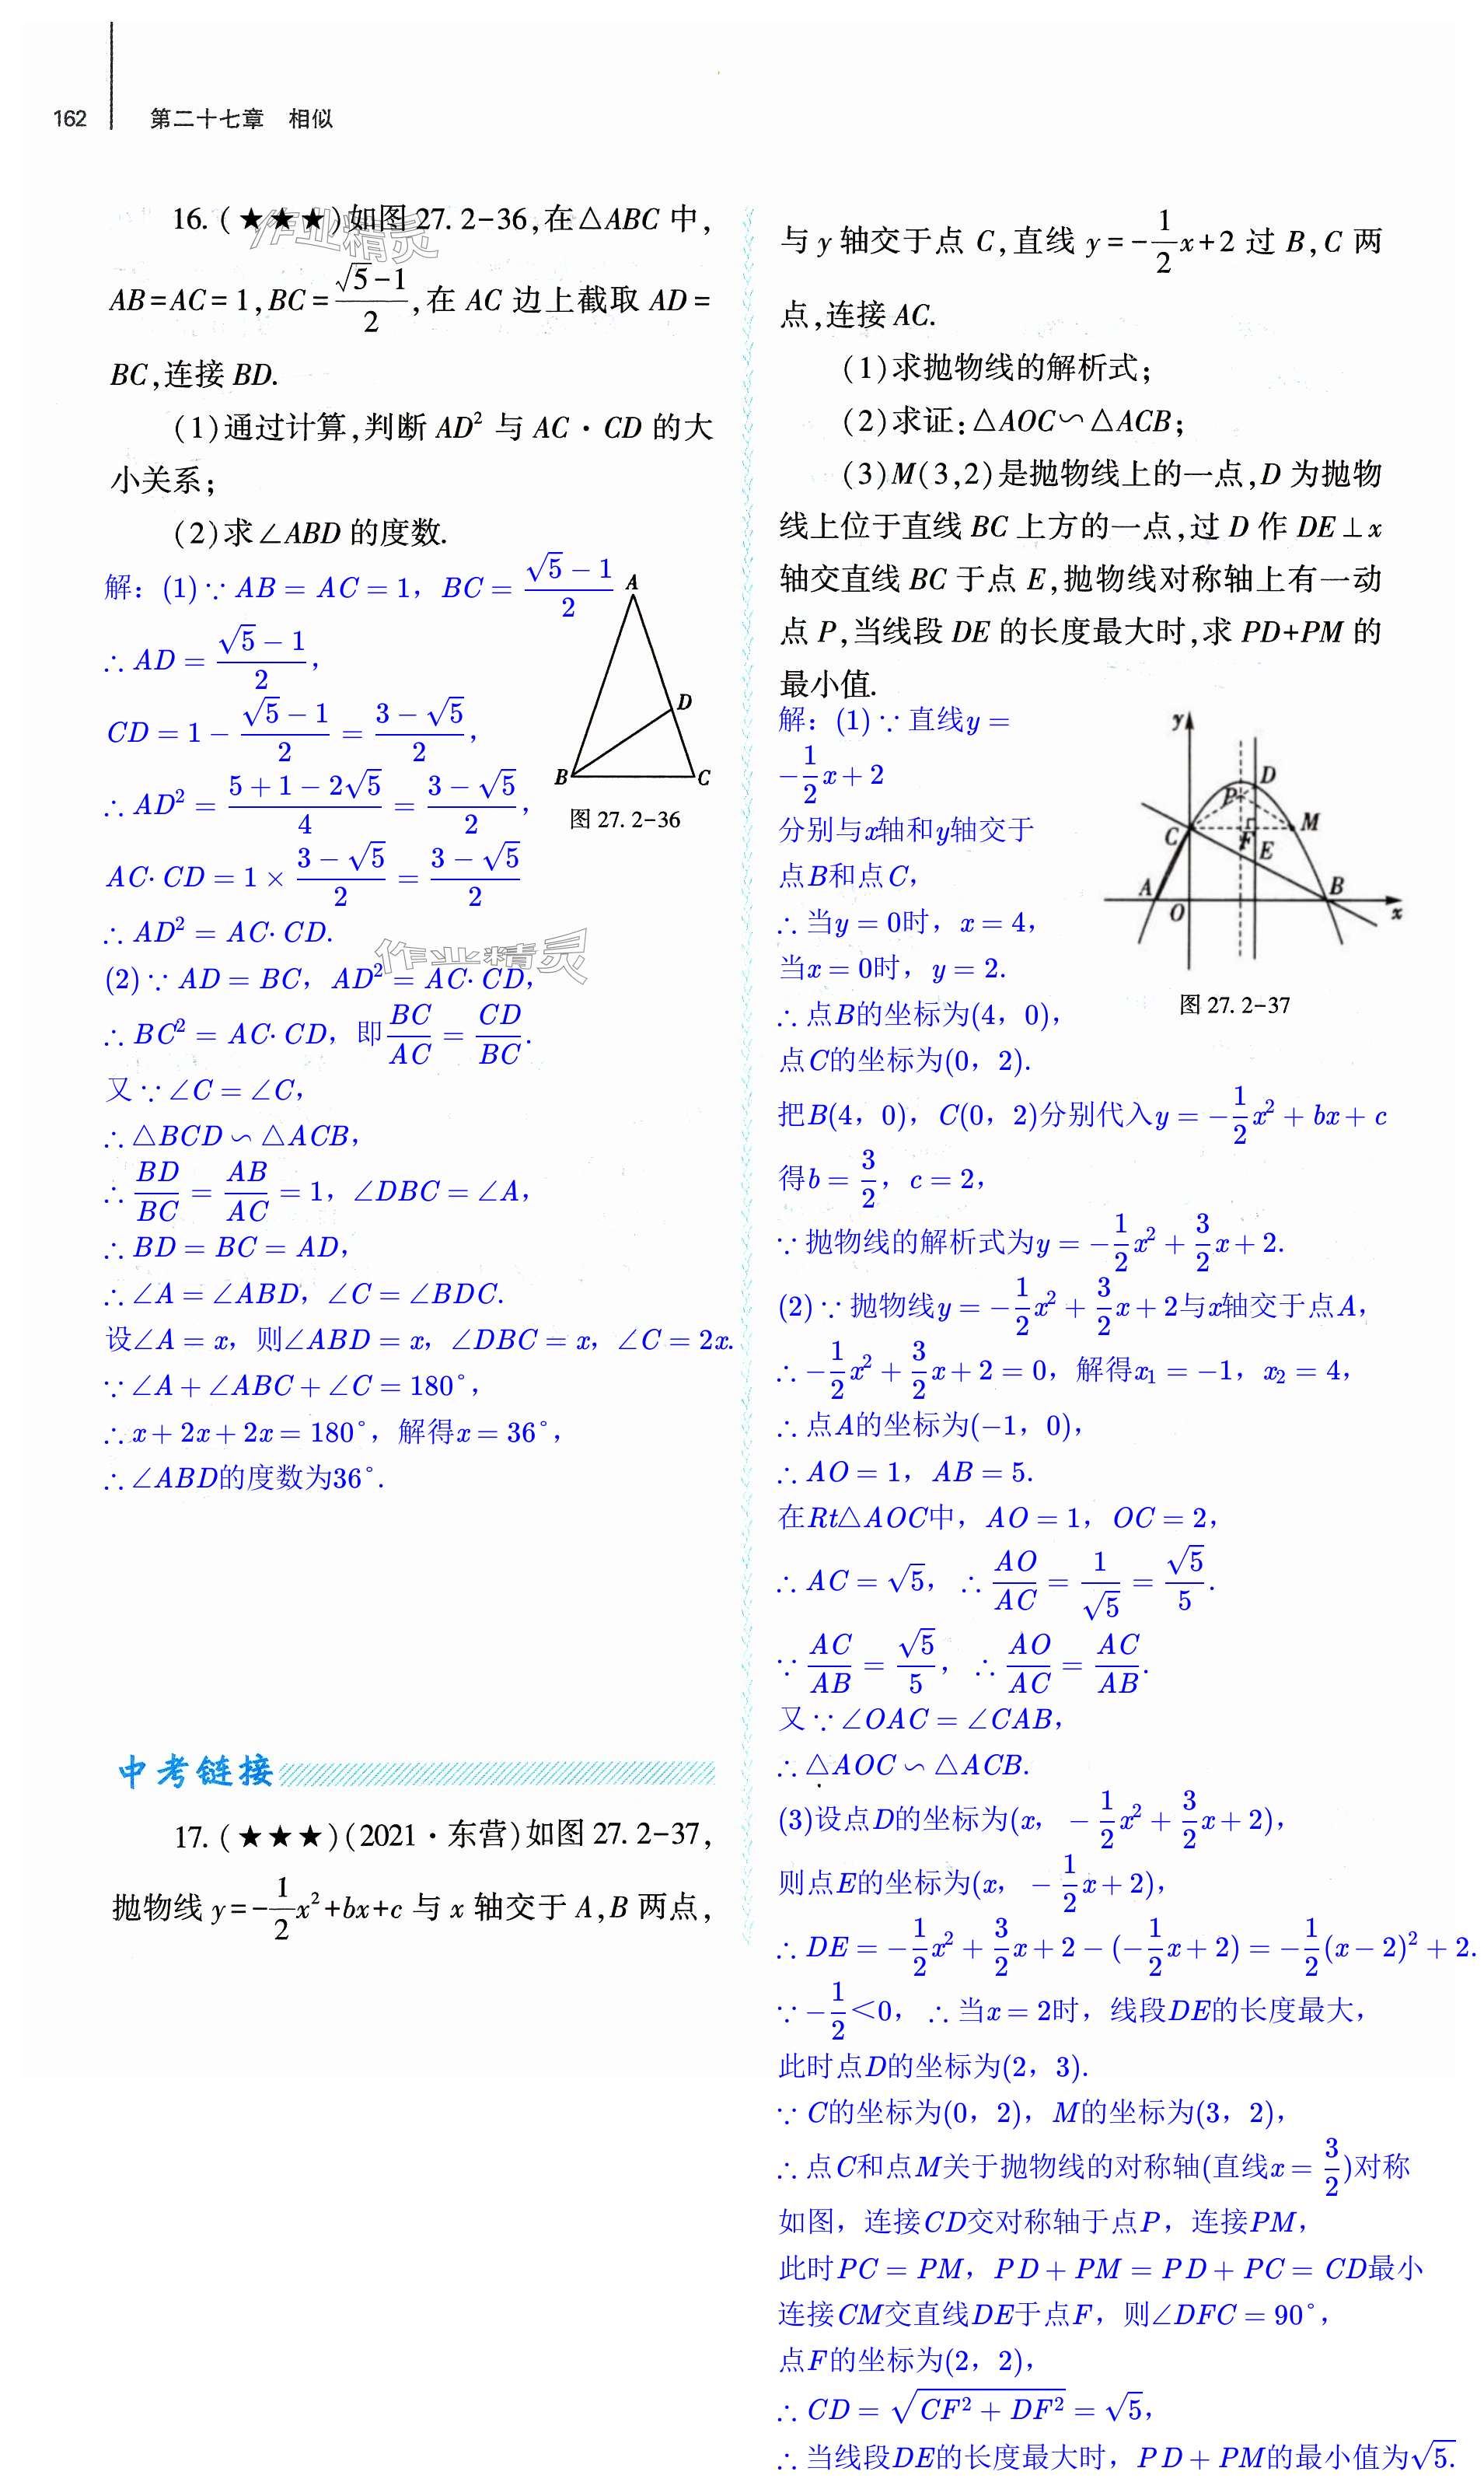 162 第二十七章 相似
16. (★★★)如图27.2-36,在△ABC中,
AB=AC=1,BC=\frac{\sqrt{5}-1}{2},在AC边上截取AD=
BC,连接BD.
(1)通过计算,判断AD²与AC·CD的大
小关系;
(2)求∠ABD的度数.
解：(1)∵AB=AC=1，BC=\frac{\sqrt{5}-1}{2}
∴AD=\frac{\sqrt{5}-1}{2}，
CD=1-\frac{\sqrt{5}-1}{2}=\frac{3-\sqrt{5}}{2}，
∴AD²=\frac{5+1-2\sqrt{5}}{4}=\frac{3-\sqrt{5}}{2}，
AC·CD=1×\frac{3-\sqrt{5}}{2}=\frac{3-\sqrt{5}}{2}
∴AD²=AC·CD.
(2)∵AD=BC，AD²=AC·CD，
∴BC²=AC·CD，即\frac{BC}{AC}=\frac{CD}{BC}.
又∵∠C=∠C，
∴△BCD∽△ACB，
∴\frac{BD}{BC}=\frac{AB}{AC}=1，∠DBC=∠A，
∴BD=BC=AD，
∴∠A=∠ABD，∠C=∠BDC.
设∠A=x，则∠ABD=x，∠DBC=x，∠C=2x.
∵∠A+∠ABC+∠C=180°，
∴x+2x+2x=180°，解得x=36°，
∴∠ABD的度数为36°.
A
D
B
C
图27.2-36
作业精灵
作业精灵
中考链接
17. (★★★)(2021·东营)如图27.2-37,
抛物线y=-\frac{1}{2}x²+bx+c与x轴交于A,B两点,
与y轴交于点C,直线y=-\frac{1}{2}x+2过B,C两
点,连接AC.
(1)求抛物线的解析式;
(2)求证:△AOC∽△ACB;
(3)M(3,2)是抛物线上的一点,D为抛物
线上位于直线BC上方的一点,过D作DE⊥x
轴交直线BC于点E,抛物线对称轴上有一动
点P,当线段DE的长度最大时,求PD+PM的
最小值.
解：(1)∵直线y=
-\frac{1}{2}x+2
分别与x轴和y轴交于
点B和点C，
∴当y=0时，x=4，
当x=0时，y=2.
∴点B的坐标为(4，0)，
点C的坐标为(0，2).
y
D
P
C
M
F
E
A
B
O
x
图27.2-37
把B(4，0)，C(0，2)分别代入y=-\frac{1}{2}x²+bx+c
得b=\frac{3}{2}，c=2，
∵抛物线的解析式为y=-\frac{1}{2}x²+\frac{3}{2}x+2.
(2)∵抛物线y=-\frac{1}{2}x²+\frac{3}{2}x+2与x轴交于点A，
∴-\frac{1}{2}x²+\frac{3}{2}x+2=0，解得x₁=-1，x₂=4，
∴点A的坐标为(-1，0)，
∴AO=1，AB=5.
在Rt△AOC中，AO=1，OC=2，
∴AC=\sqrt{5}，∴\frac{AO}{AC}=\frac{1}{\sqrt{5}}=\frac{\sqrt{5}}{5}.
∵\frac{AC}{AB}=\frac{\sqrt{5}}{5}，∴\frac{AO}{AC}=\frac{AC}{AB}.
又∵∠OAC=∠CAB，
∴△AOC∽△ACB.
(3)设点D的坐标为(x，-\frac{1}{2}x²+\frac{3}{2}x+2)，
则点E的坐标为(x，-\frac{1}{2}x+2)，
∴DE=-\frac{1}{2}x²+\frac{3}{2}x+2-(-\frac{1}{2}x+2)=-\frac{1}{2}(x-2)²+2.
∵-\frac{1}{2}<0，∴当x=2时，线段DE的长度最大，
此时点D的坐标为(2，3).
∵C的坐标为(0，2)，M的坐标为(3，2)，
∴点C和点M关于抛物线的对称轴(直线x=\frac{3}{2})对称
如图，连接CD交对称轴于点P，连接PM，
此时PC=PM，PD+PM=PD+PC=CD最小
连接CM交直线DE于点F，则∠DFC=90°，
点F的坐标为(2，2)，
∴CD=\sqrt{CF²+DF²}=\sqrt{5}，
∴当线段DE的长度最大时，PD+PM的最小值为\sqrt{5}.